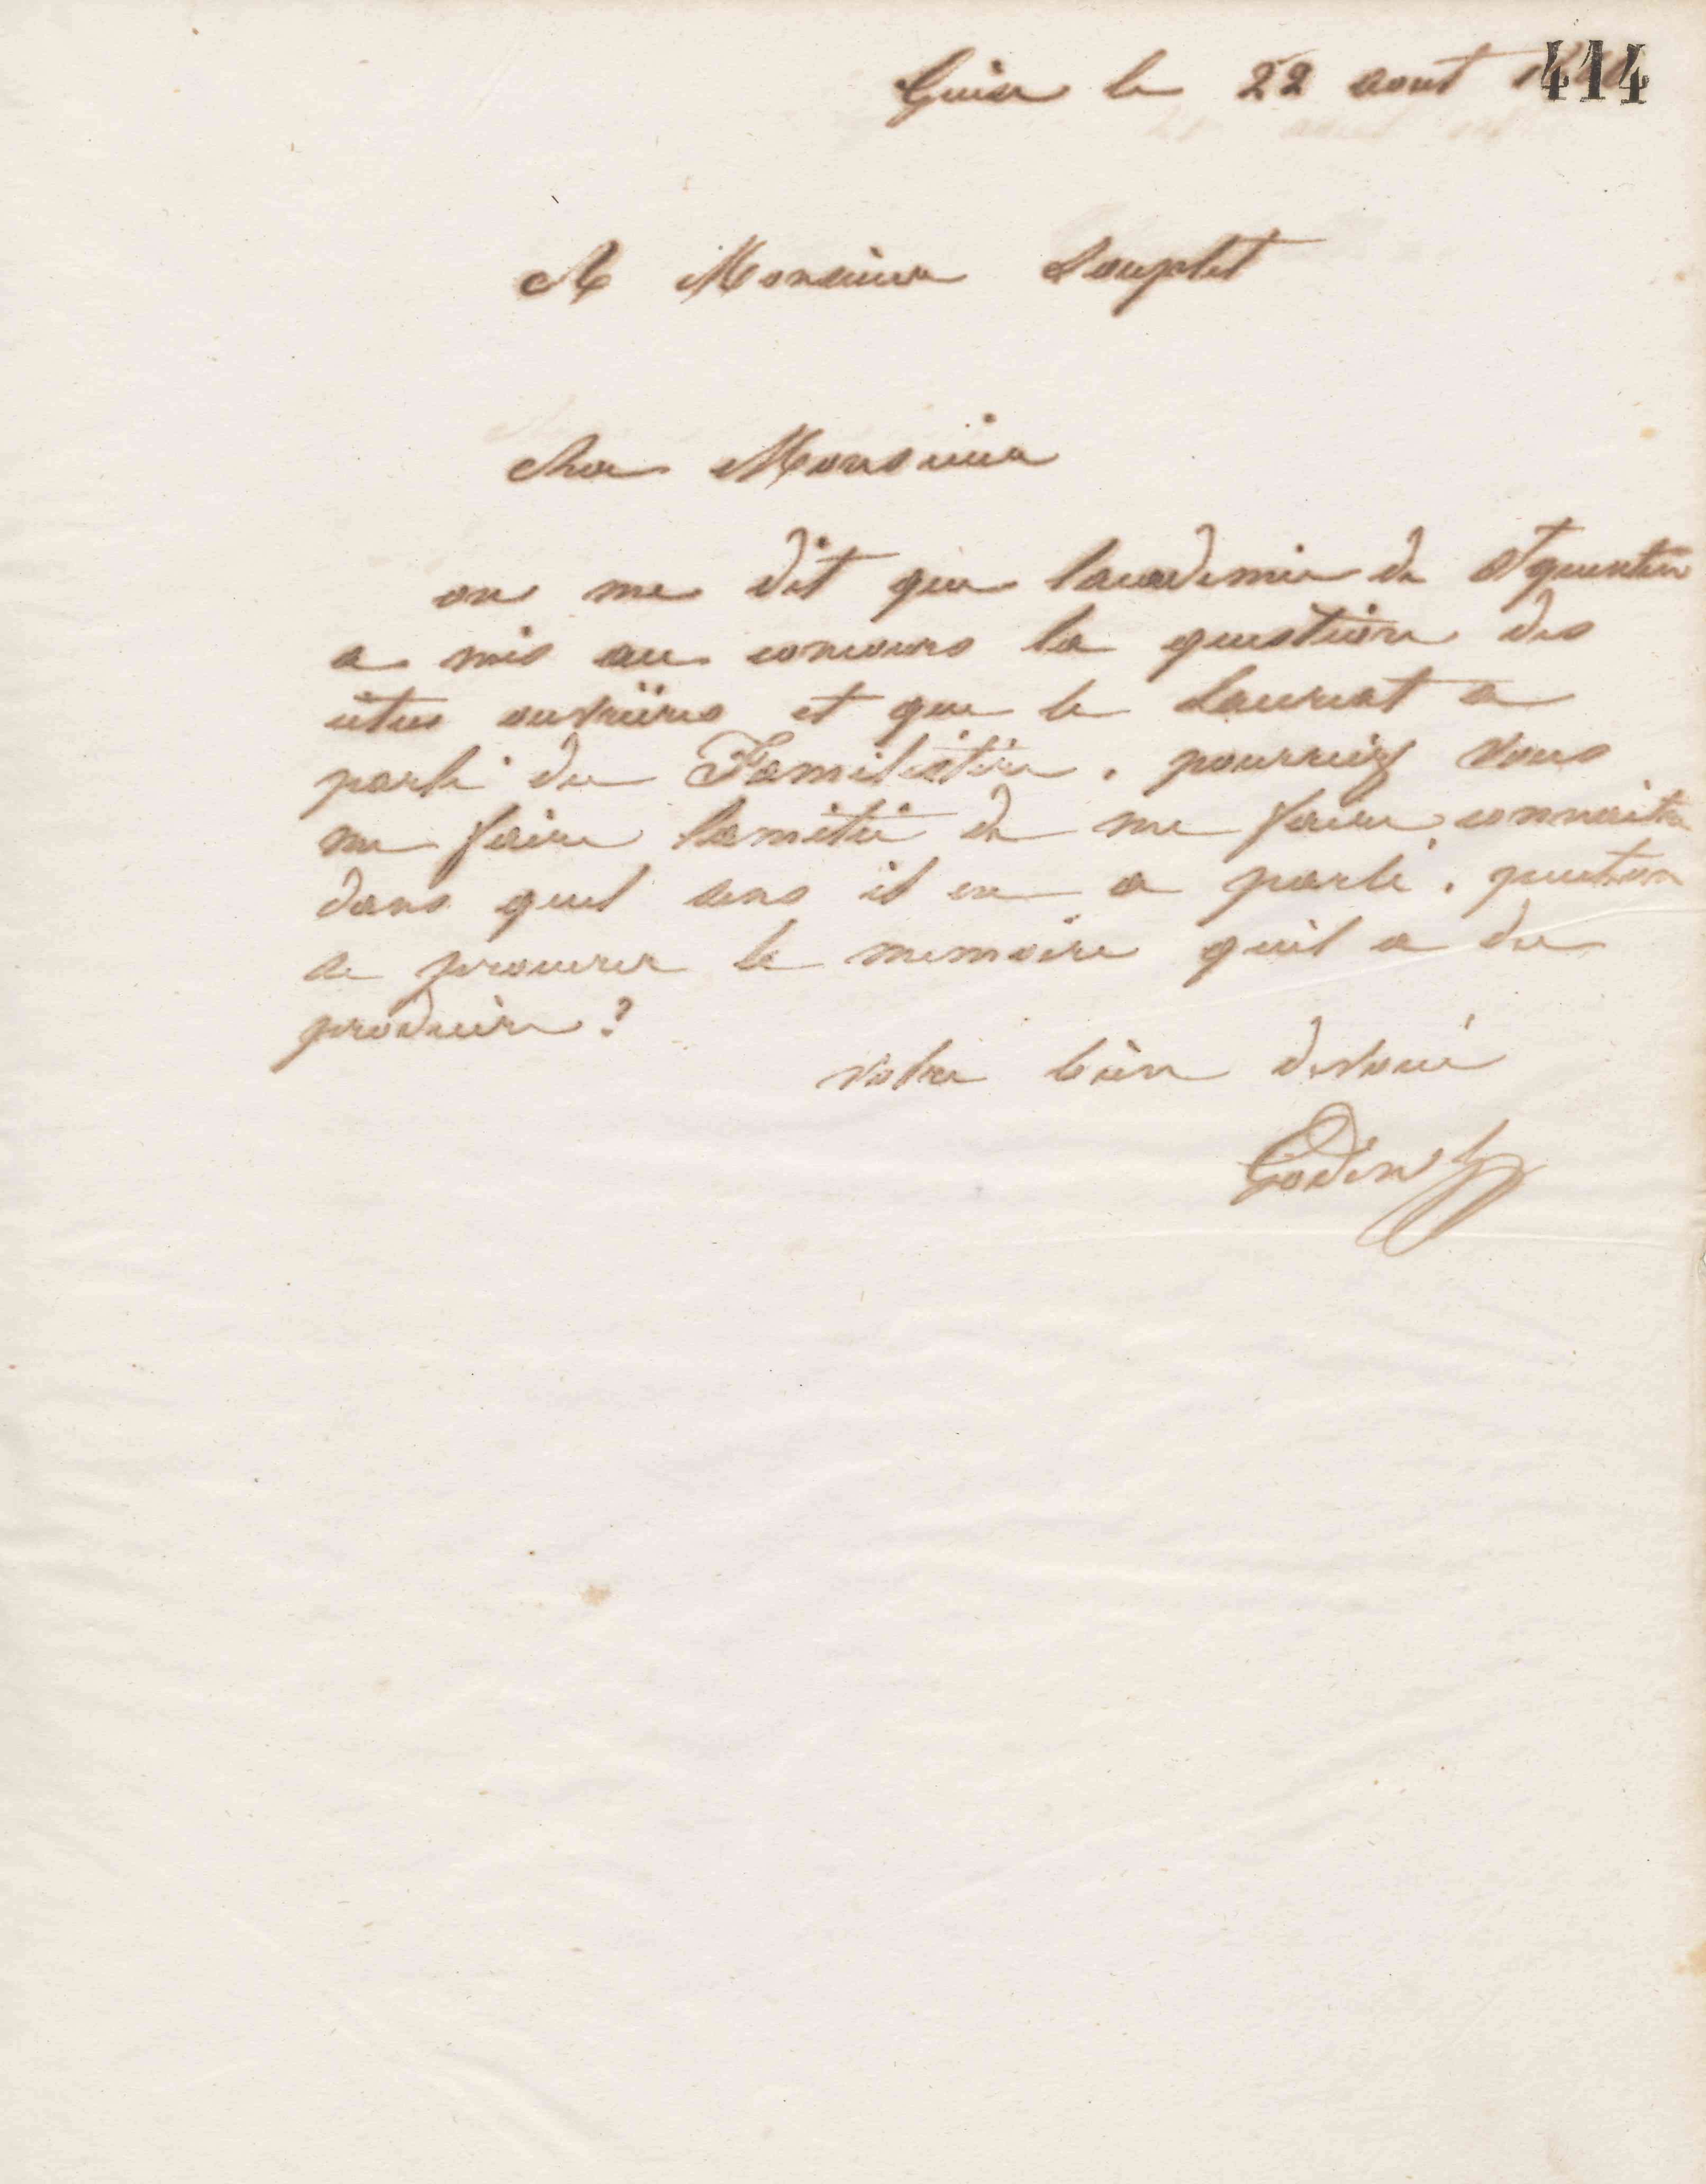 Guise le 22 aout
414
A Monsieur Souplet
cher Monsieur
on me dit que lacademie de St quentin
a mis au concours la question des
cites ouvrieres et que le Laureat a
parlé du Familistère. pourriez vous
me faire lamitié de me faire connaitre
dans quel sens il en a parlé. peut on
se procurer le memoire quil a du
produire ?
votre bien devoué
Godin